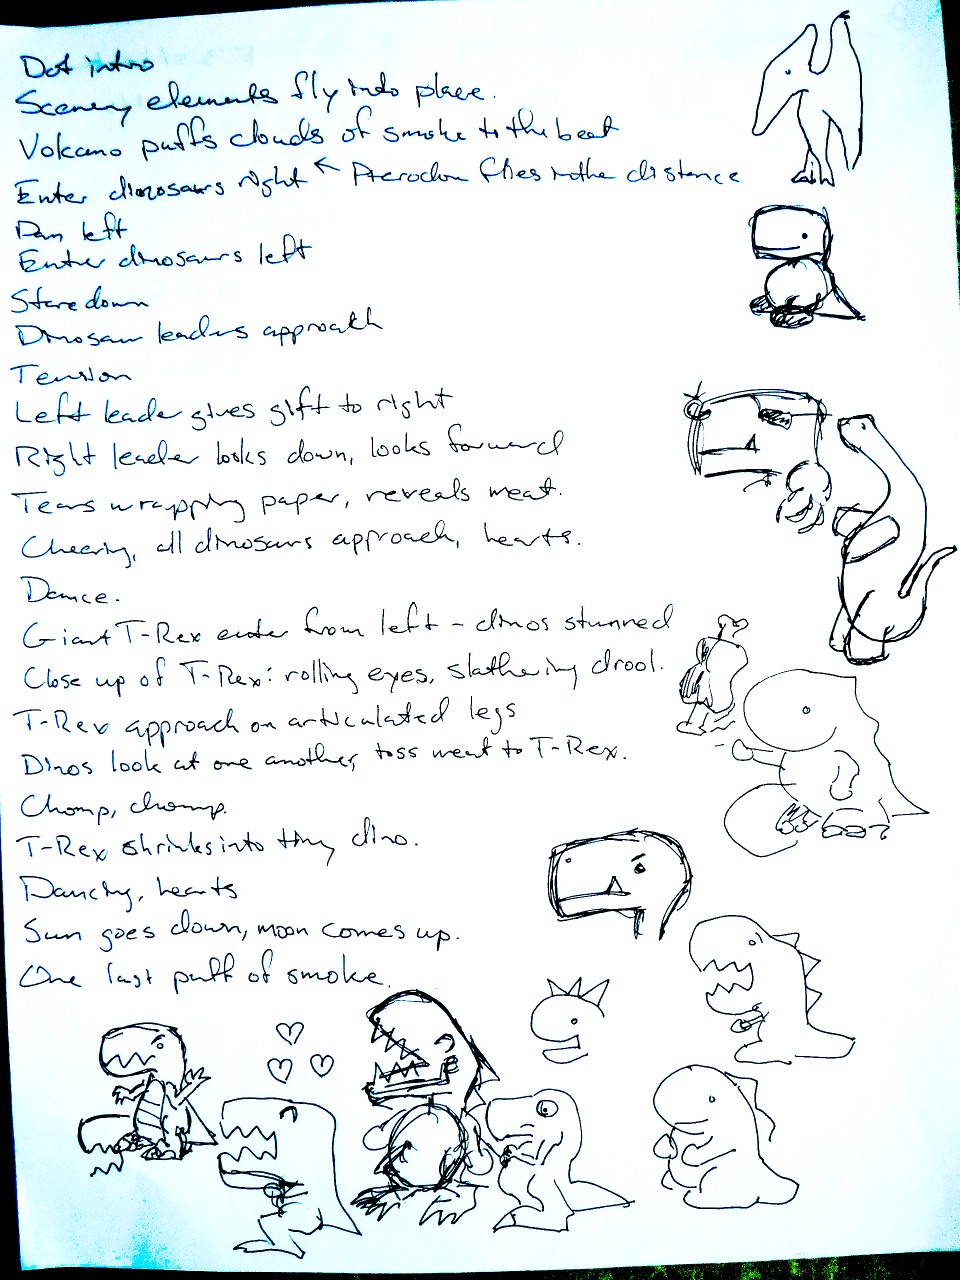 Dot intro
Scenery elements fly into place.
Volcano puffs clouds of smoke to the beat
Enter dinosaurs right ↖ Pterodon flies in the distance
Pan left
Enter dinosaurs left
Stare down
Dinosaur leaders approach
Tension
Left leader gives gift to right
Right leader looks down, looks forward
Tears wrapping paper, reveals meat.
Cheering, all dinosaurs approach, hearts.
Dance.
Giant T-Rex enter from left - dinos stunned
Close up of T-Rex: rolling eyes, slathering drool.
T-Rex approach on articulated legs
Dinos look at one another, toss meat to T-Rex.
Chomp, chomp.
T-Rex shrinks into tiny dino.
Dancing, hearts
Sun goes down, moon comes up.
One last puff of smoke.